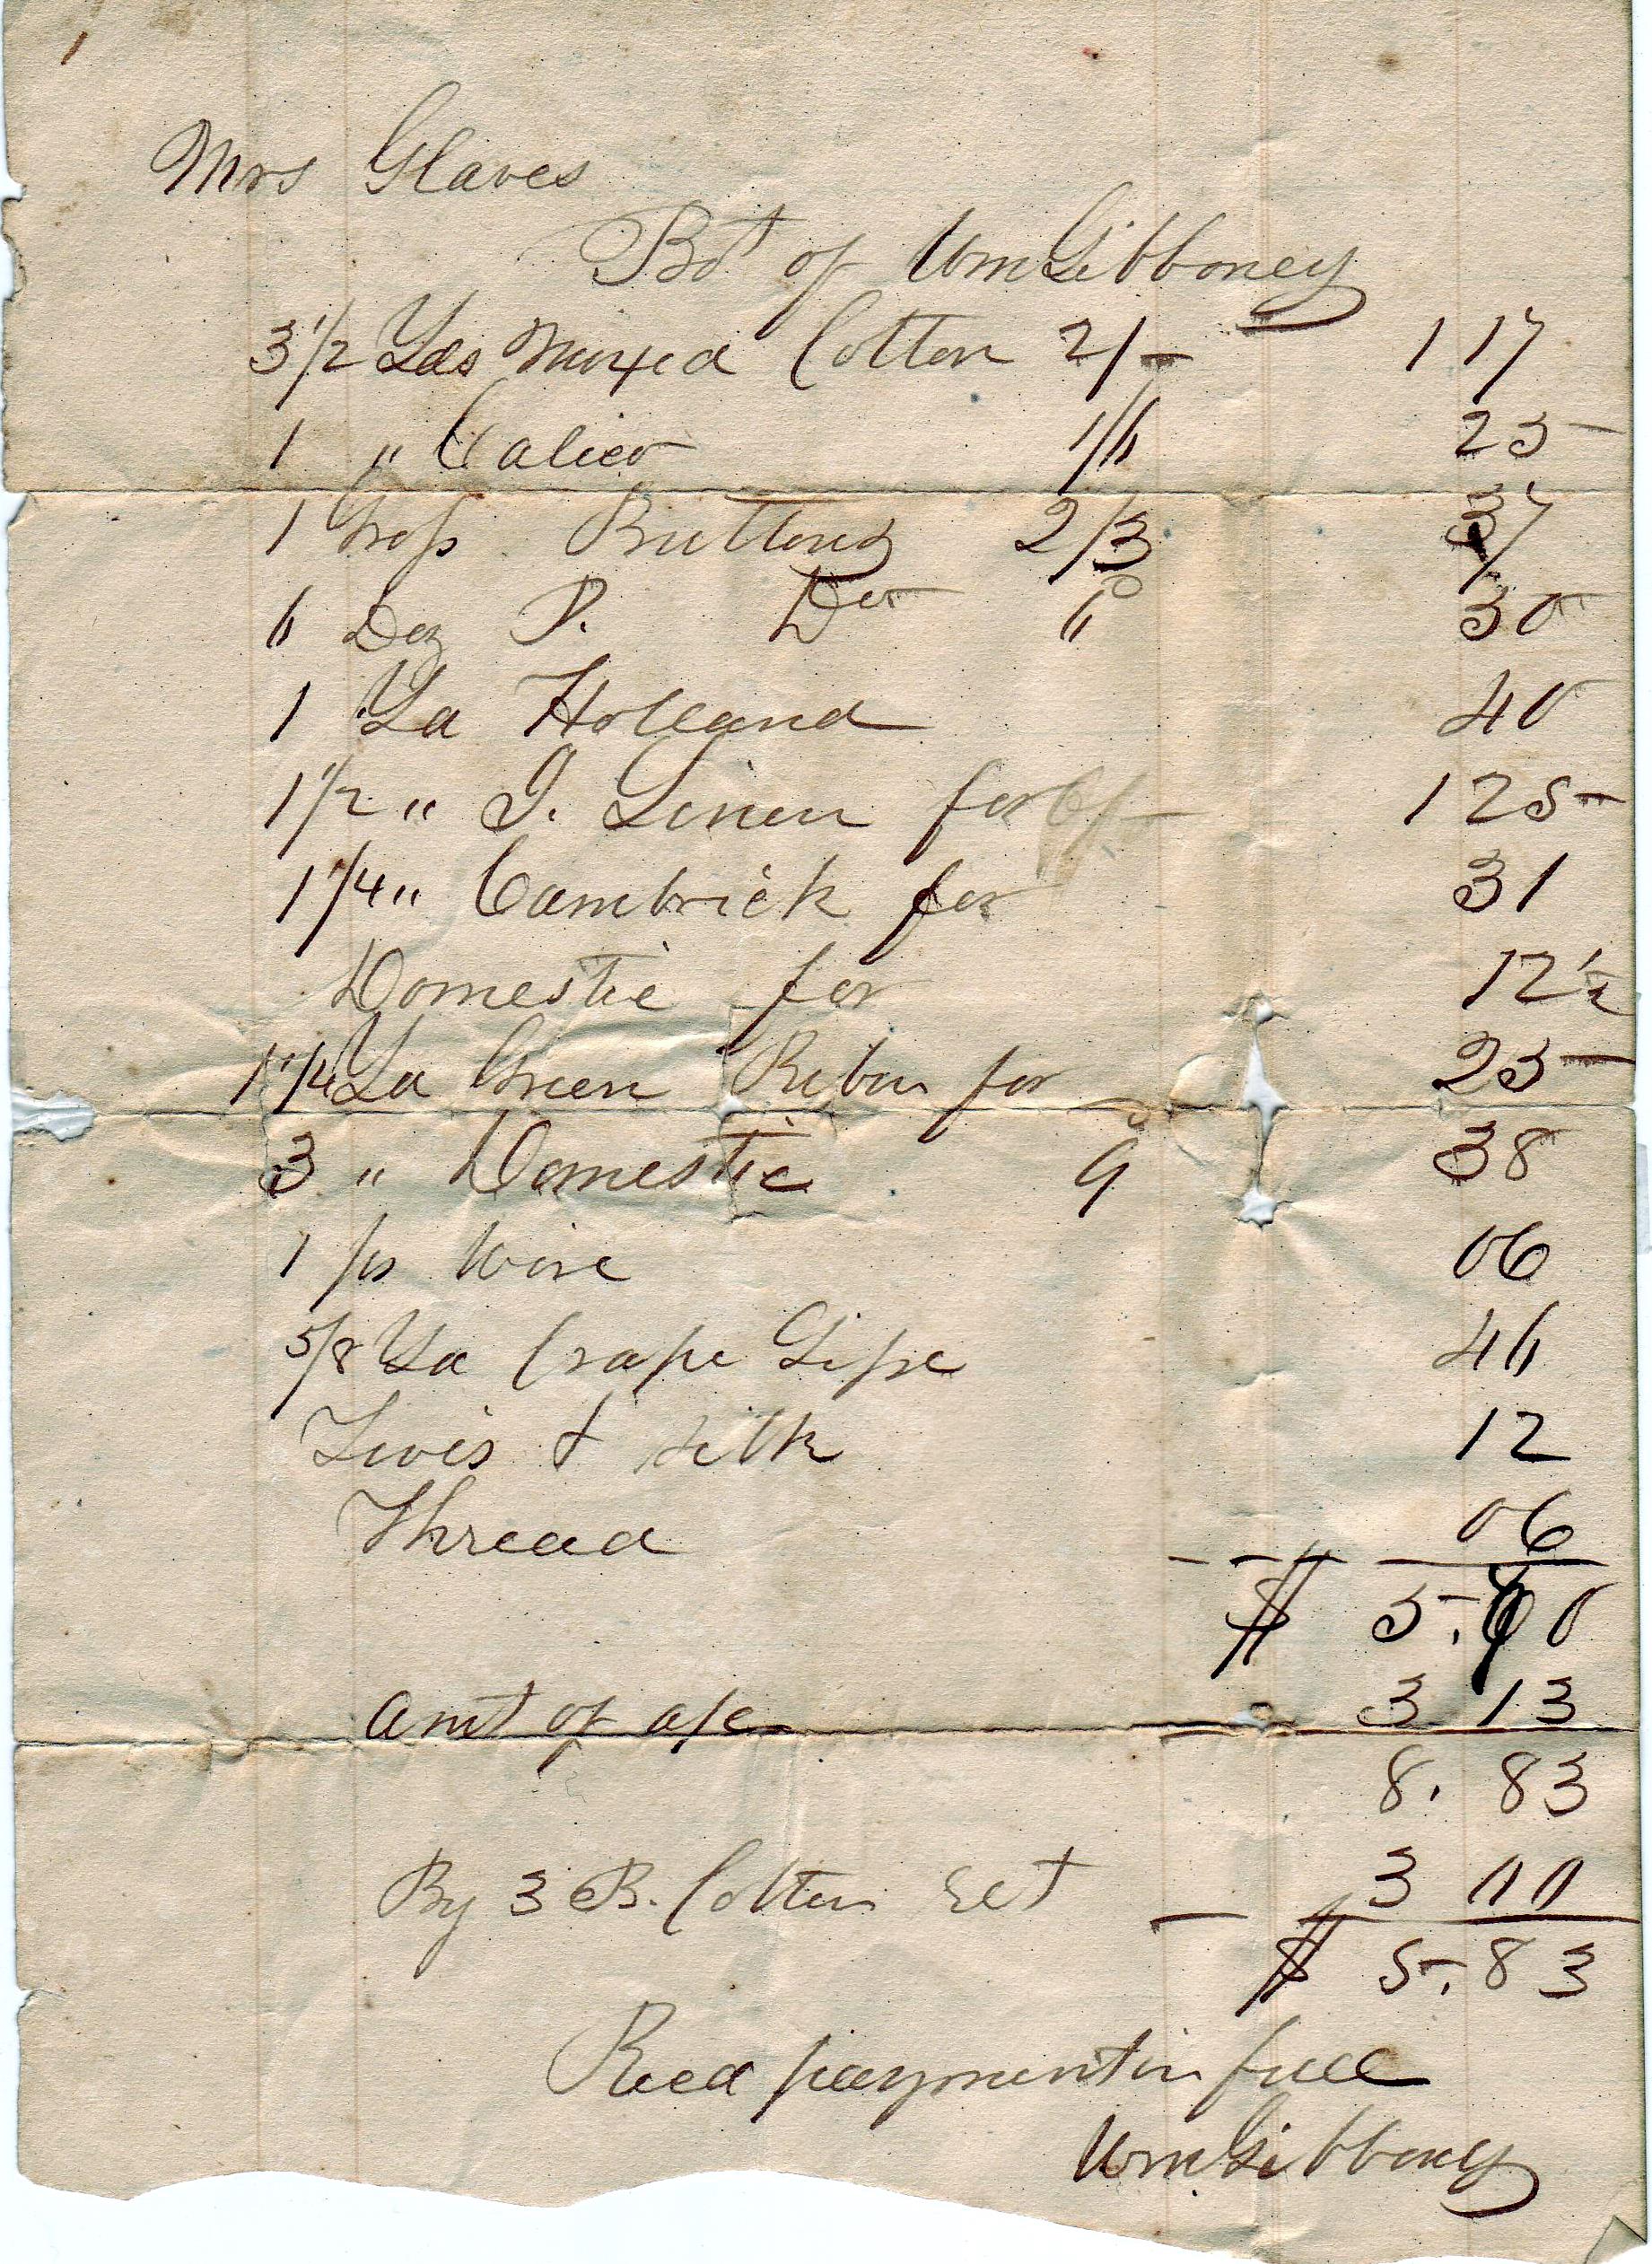 Mrs Glaves
Bot of Wm Gibboney
3 1/2 Yds Mixed Cotton 2/- 1 17
1 " Calico 1/6 25
1 Gross Buttons 2/3 37
6 Doz P. Do 6 30
1 Yd Holland 40
1 1/2 " I. Linen for 1 25
1 1/4 " Cambrick for 31
Domestic for 12 1/2
1 1/4 Yd Green Ribon for 25
3 " Domestic 9 38
1 ps Wire 06
5/8 Yd Crape Lipe 46
Twis & silk 12
Thread 06
$ 5.70
Amt of a/c 3 13
8. 83
By 3 B. Cotton 3 00
$ 5.83
Recd payment in full
Wm Gibboney